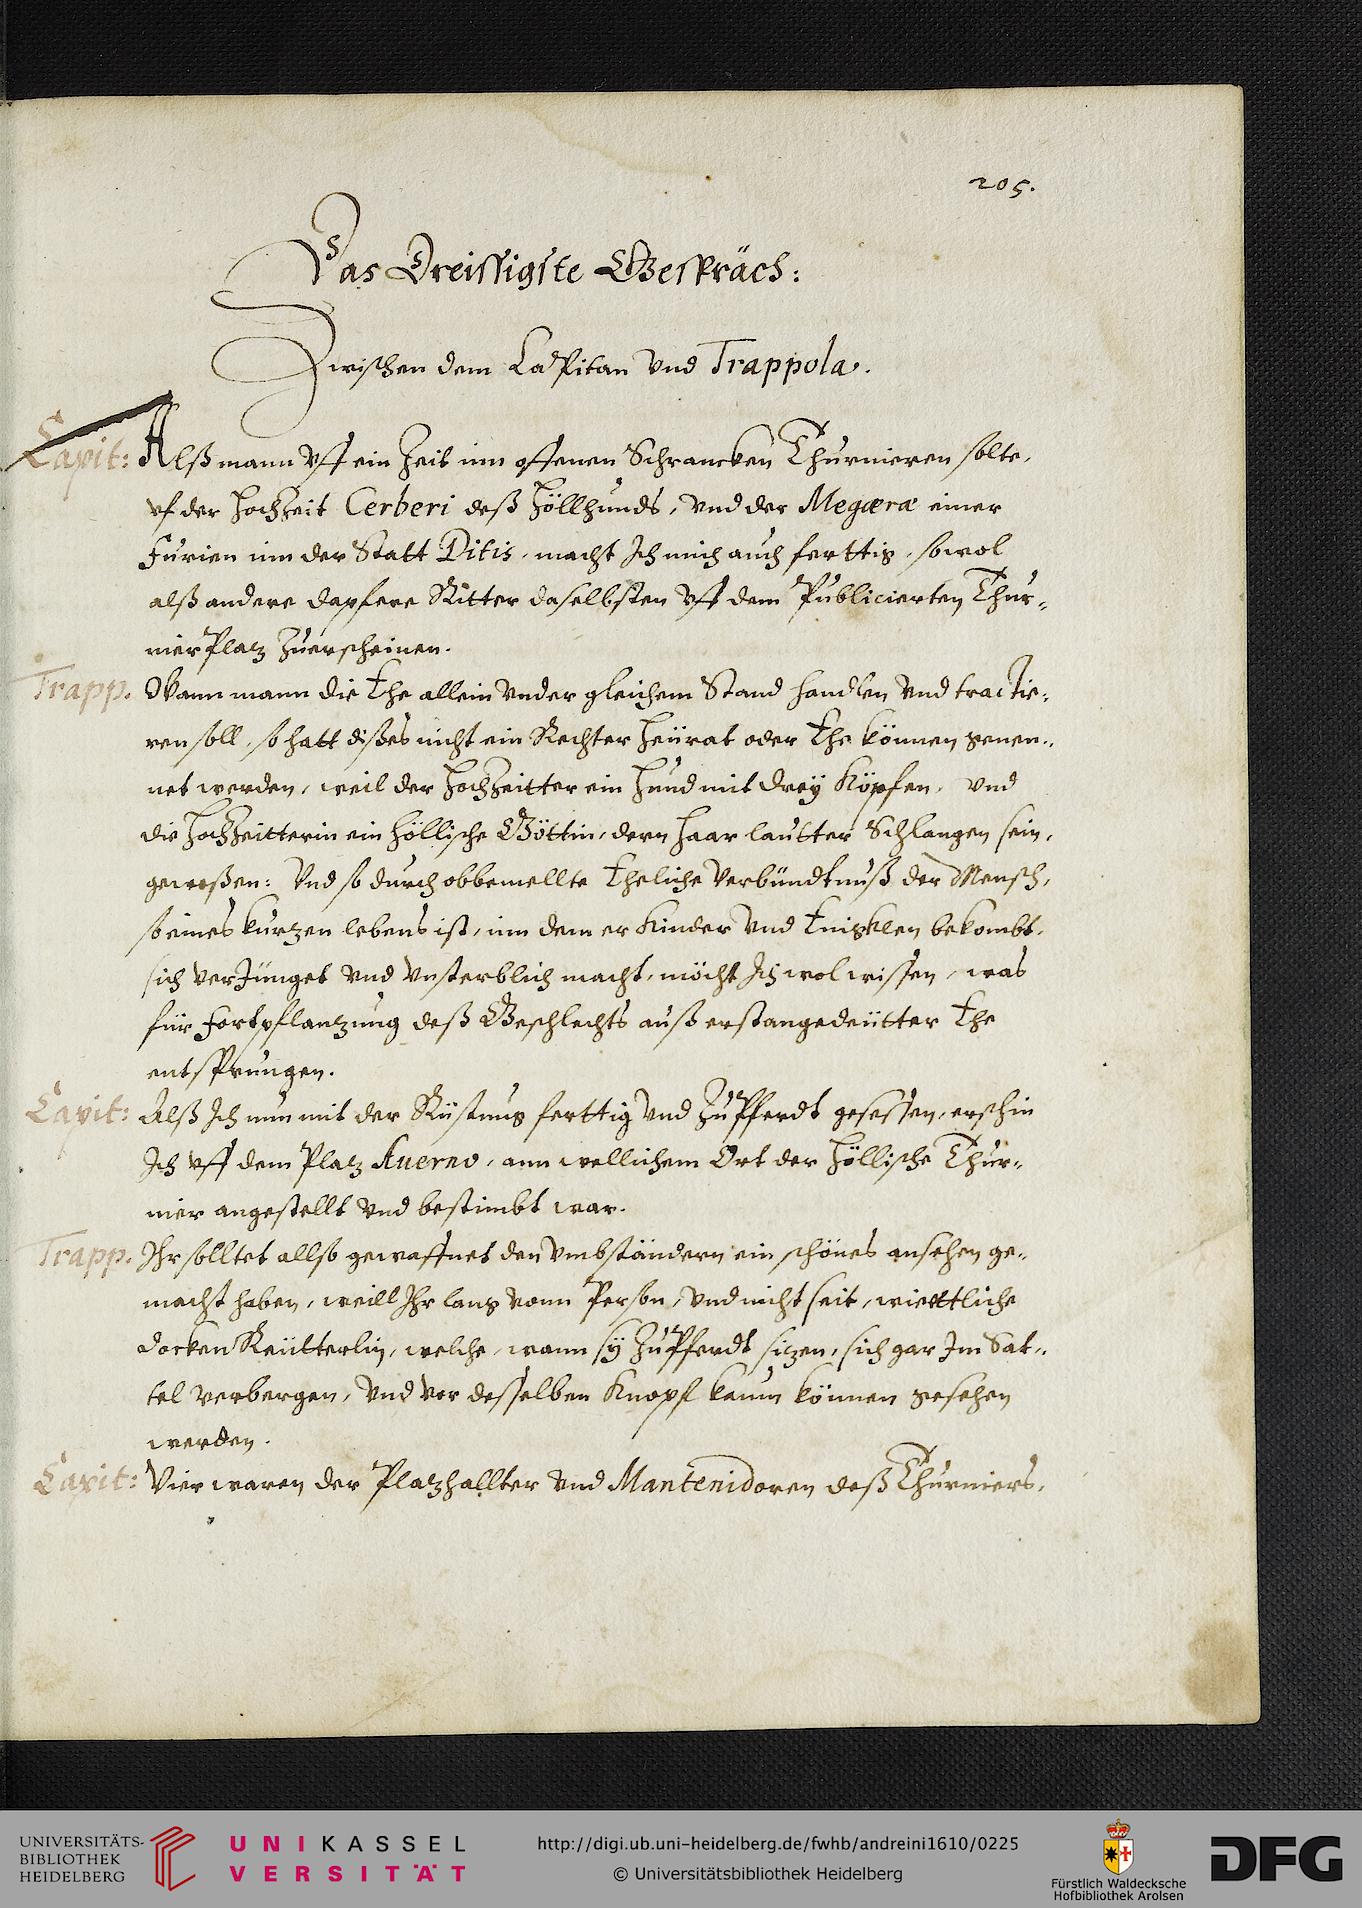 205.
Das Dreissigste Gespräch:
Zwischen dem Capitan vnd Trappola.
Capit: Alß mann vff ein Zeit inn offenen Schrancken Thurnieren solte,
vf der Hochzeit Cerberi deß Höllhunds, vnd der Megæræ einer
Furien inn der Statt Ditis, macht Ich mich auch ferttig, sowol
alß andere dapfere Ritter daselbsten vff dem Publicierten Thur-
nier Platz zuerscheinen.
Trapp. Wann mann die Ehe allein vnder gleichem Stand handlen vnd tractie-
ren soll, so hatt dißes nicht ein Rechter Heürat oder Ehe können genen-
net werden, weil der Hochzeitter ein Hund mit dreÿ Köpfen, vnd
die Hochzeitterin ein Höllische Göttin, dern Haar lautter Schlangen sein,
geweßen: Vnd so durch obbemellte Eheliche Verbündtnuß der Mensch,
so eines kurtzen lebens ist, inn dem er Kinder vnd Enicklen bekombt,
sich verJünget vnd vnsterblich macht, möcht Ich wol wissen, was
für Fortpflantzung deß Geschlechts auß erstangedeütter Ehe
entsprungen.
Capit: Alß Ich nun mit der Rüstung ferttig vnd zu Pferdt gesessen, erschin
Ich vff dem Platz Auerno, ann wellichem Ort der Höllische Thur-
nier angestellt vnd bestimbt war.
Trapp. Ihr solltet allso gewaffnet den vmbständern ein schönes ansehen ge-
macht haben, weill Ihr lang vonn Person, vnd nicht seit, wie ettliche
docken Reütterlin, welche, wann sÿ zu Pferdt sitzen, sich gar Im Sat-
tel verbergen, vnd vor desselben Knopf kaum können gesehen
werden.
Capit: Vier waren der Platzhallter vnd Mantenidoren deß Thurniers,
UNIVERSITÄTS-
BIBLIOTHEK
HEIDELBERG
UNIKASSEL
VERSITÄT
http://digi.ub.uni-heidelberg.de/fwhb/andreini1610/0225
© Universitätsbibliothek Heidelberg
Fürstlich Waldecksche
Hofbibliothek Arolsen
DFG